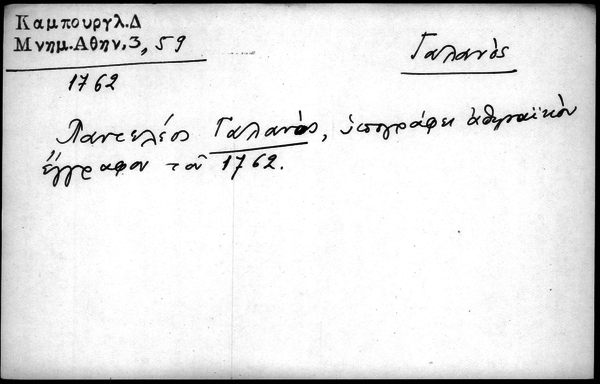 Καμπουργλ.Δ
Μνημ.Αθην.3, 59
Γαλανὸς
1762
Παντελέος Γαλανὸς, ὑπογράφει ἀθηναϊκὸν
ἔγγραφον τοῦ 1762.